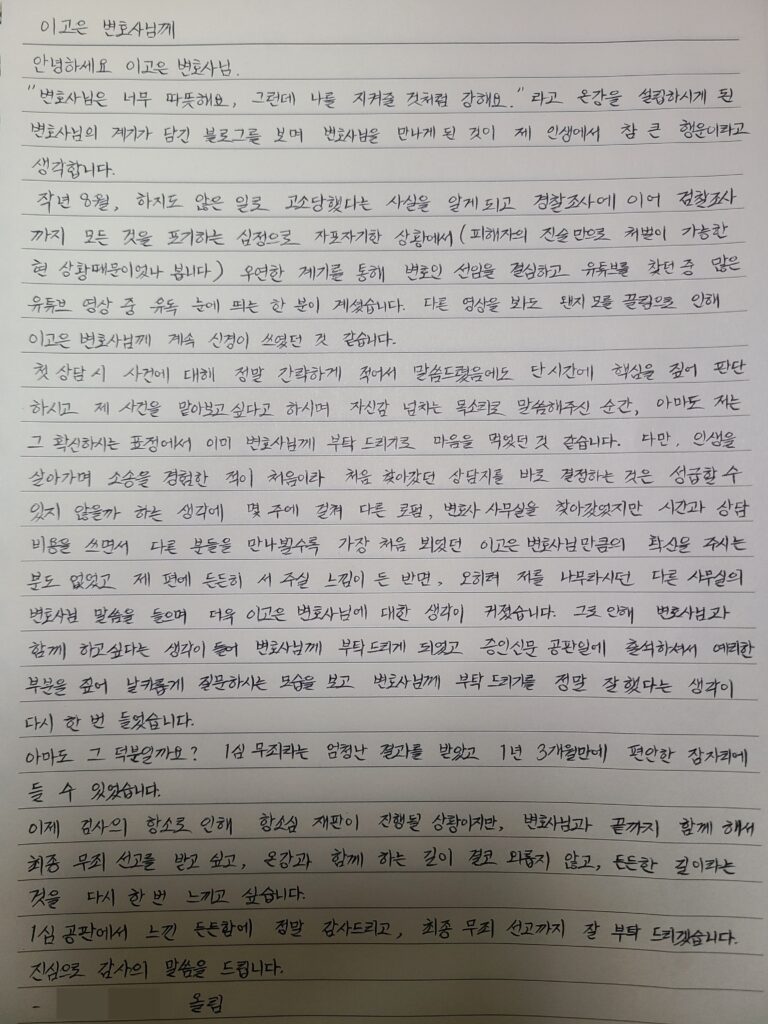 이고은 변호사님께
안녕하세요 이고은 변호사님.
"변호사님은 너무 따뜻해요, 그런데 나를 지켜줄 것처럼 강해요." 라고 온강을 설립하시게 된
변호사님의 계기가 담긴 블로그를 보며 변호사님을 만나게 된 것이 제 인생에서 참 큰 행운이라고
생각합니다.
작년 8월, 하지도 않은 일로 고소당했다는 사실을 알게 되고 경찰조사에 이어 검찰조사
까지 모든 것을 포기하는 심정으로 자포자기한 상황에서 (피해자의 진술만으로 처벌이 가능한
현 상황때문이었나 봅니다) 우연한 계기를 통해 변호인 선임을 결심하고 유튜브를 찾던 중 많은
유튜브 영상 중 유독 눈에 띄는 한 분이 계셨습니다. 다른 영상을 봐도 왠지 모를 끌림으로 인해
이고은 변호사님께 계속 신경이 쓰였던 것 같습니다.
첫 상담 시 사건에 대해 정말 간략하게 적어서 말씀드렸음에도 단시간에 핵심을 짚어 판단
하시고 제 사건을 맡아보고 싶다고 하시며 자신감 넘차는 목소리로 말씀해주신 순간, 아마도 저는
그 확신하시는 표정에서 이미 변호사님께 부탁 드리기로 마음을 먹었던 것 같습니다. 다만, 인생을
살아가며 소송을 경험한 적이 처음이라 처음 찾아갔던 상담지를 바로 결정하는 것은 성급할 수
있지 않을까 하는 생각에 몇 주에 걸쳐 다른 로펌, 변호사 사무실을 찾아갔었지만 시간과 상담
비용을 쓰면서 다른 분들을 만나뵐수록 가장 처음 뵈었던 이고은 변호사님만큼의 확신을 주시는
분도 없었고 제 편에 든든히 서 주실 느낌이 든 반면, 오히려 저를 나무라시던 다른 사무실의
변호사님 말씀을 들으며 더욱 이고은 변호사님에 대한 생각이 커졌습니다. 그로 인해 변호사님과
함께 하고 싶다는 생각이 들어 변호사님께 부탁드리게 되었고 증인신문 공판일에 출석하셔서 예리한
부분을 짚어 날카롭게 질문하시는 모습을 보고 변호사님께 부탁 드리기를 정말 잘 했다는 생각이
다시 한 번 들었습니다.
아마도 그 덕분일까요? 1심 무죄라는 엄청난 결과를 받았고 1년 3개월만에 편안한 잠자리에
들 수 있었습니다.
이제 검사의 항소로 인해 항소심 재판이 진행될 상황이지만, 변호사님과 끝까지 함께 해서
최종 무죄 선고를 받고 싶고, 온강과 함께 하는 길이 결코 외롭지 않고, 든든한 길이라는
것을 다시 한 번 느끼고 싶습니다.
1심 공판에서 느낀 든든함에 정말 감사드리고, 최종 무죄 선고까지 잘 부탁 드리겠습니다.
진심으로 감사의 말씀을 드립니다.
- 올림